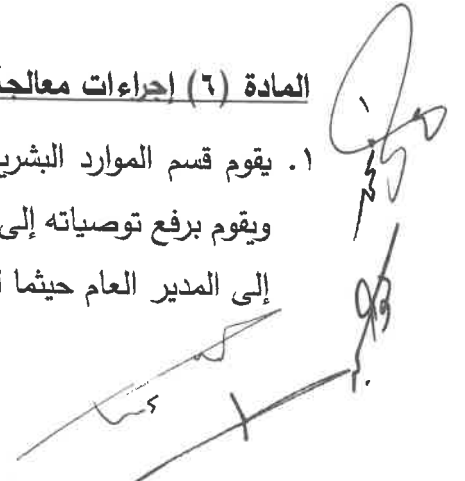 المادة (٦) إجراءات معالجة
١. يقوم قسم الموارد البشرية
ويقوم برفع توصياته إلى
إلى المدير العام حيثما